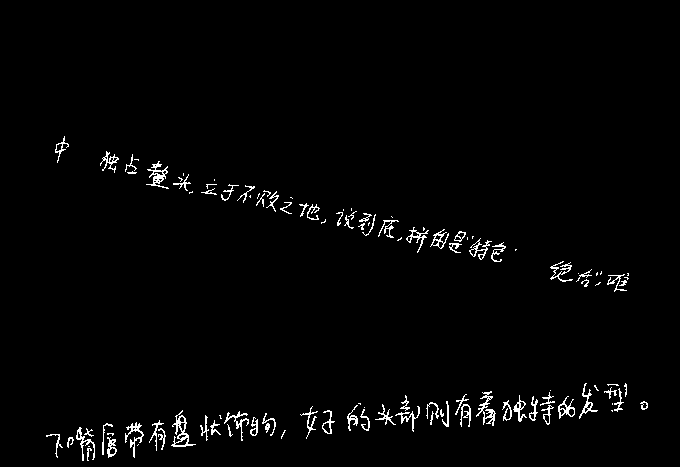 中 独占鳌头,立于不败之地,说到底,拼的是“特色”
绝后”,唯
下嘴唇带有盘状饰物,女子的头部则有着独特的发型。